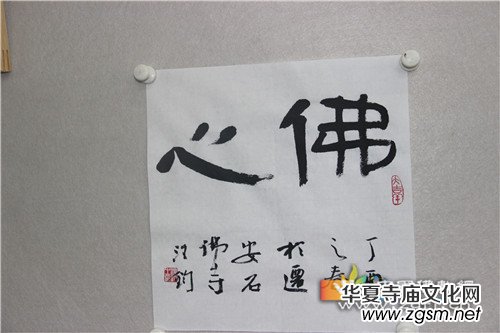 佛心
丁酉
之春
於遷
安石
佛寺
华夏寺庙文化网
www.zgsm.net